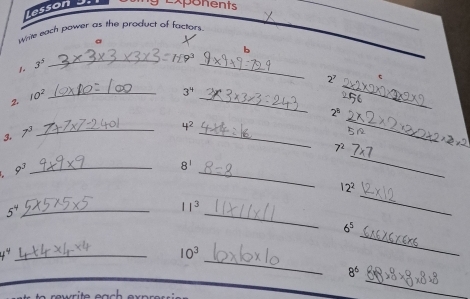 Lesson
Exponents
Write each power as the product of factors.
a b c
1. 3⁵ 3×3×3×3×3= 9³ 9×9×9=729 2⁷ 2×2×2×2×2×2×2
256
2. 10² 10×10=100 3⁴ 3×3×3×3=243 2⁸ 2×2×2×2×2×2×2×2
512
3. 7³ 7×7×7=2401 4² 4×4=16 7² 7×7
9³ 9×9×9 8¹ 8=8 12² 12×12
5⁴ 5×5×5×5 11³ 11×11×11 6⁵ 6×6×6×6×6
4⁴ 4×4×4×4 10³ 10×10×10 8⁶
to rewrite each